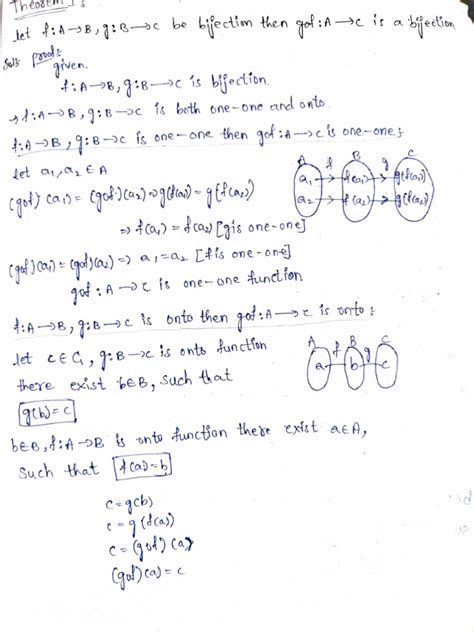 Theorem 1:
let f:A→B, g:B→C be bijection then gof:A→C is a bijection
Sol: Proof:
given.
f:A→B, g:B→C is bijection.
→ f:A→B, g:B→C is both one-one and onto.
f:A→B, g:B→C is one-one then gof:A→C is one-one:
let a₁,a₂∈A
(gof)(a₁)=(gof)(a₂)⇒g(f(a₁))=g(f(a₂))
⇒f(a₁)=f(a₂) [g is one-one]
(gof)(a₁)=(gof)(a₂)⇒ a₁=a₂ [f is one-one]
gof:A→C is one-one function
A f B g C
a₁ f(a₁) g(f(a₁))
a₂ f(a₂) g(f(a₂))
f:A→B, g:B→C is onto then gof:A→C is onto:
let c∈C, g:B→C is onto function
there exist b∈B, such that
g(b)=c
A f B g C
a b c
b∈B, f:A→B is onto function there exist a∈A,
such that f(a)=b
c=g(b)
c=g(f(a))
c=(gof)(a)
(gof)(a)=c